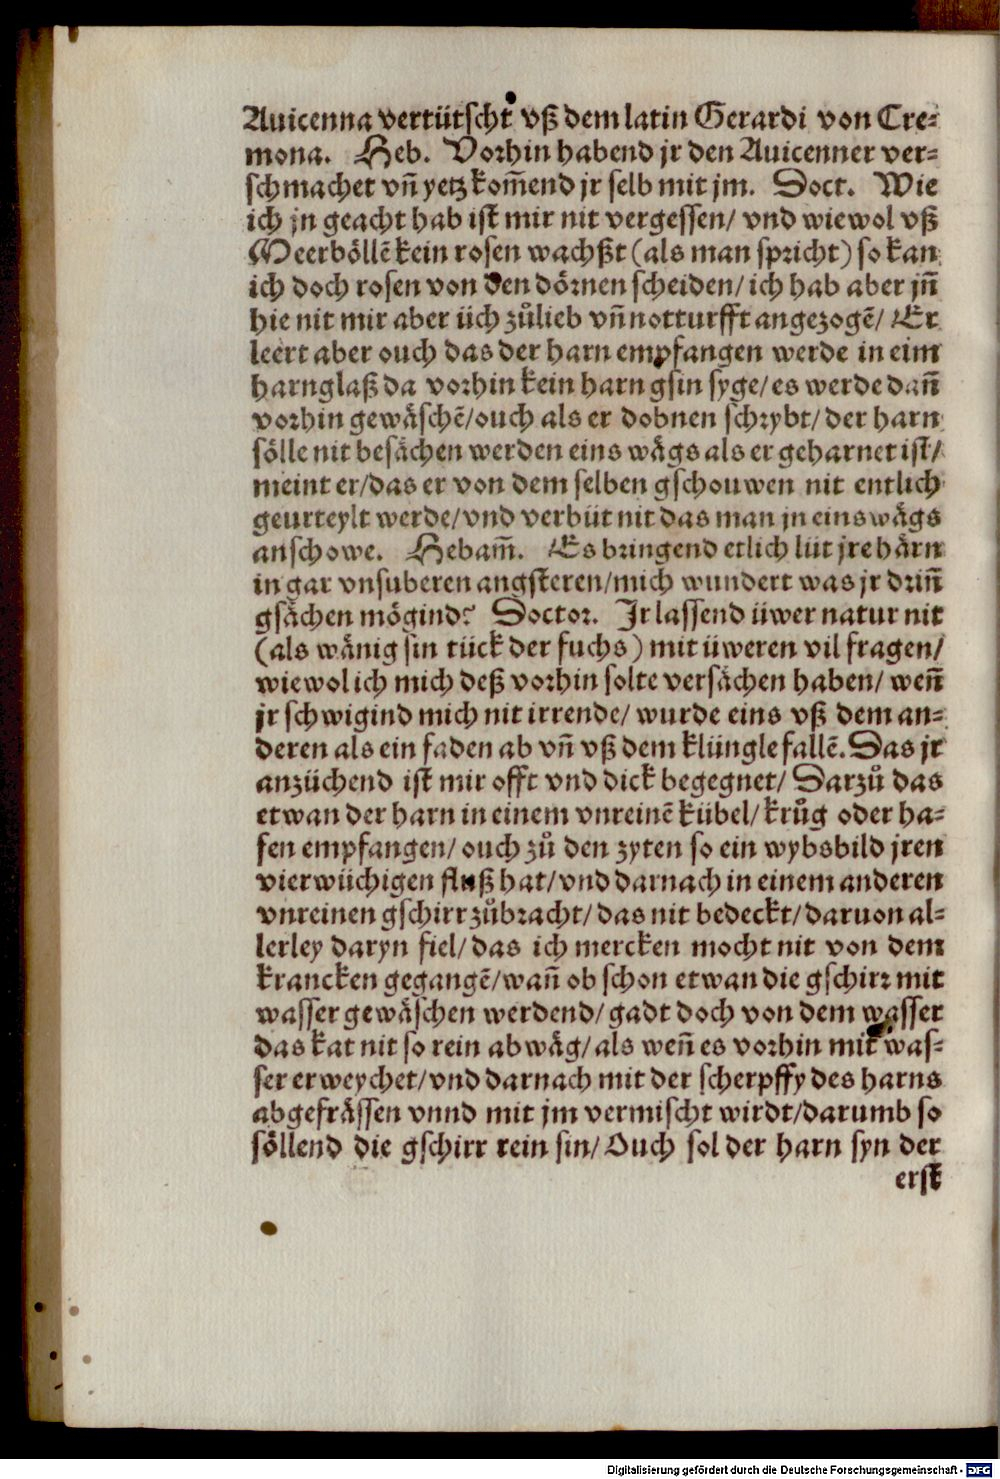 Auicenna vertütscht vß dem latin Gerardi von Cre-
mona. Heb. Vorhin habend jr den Auicenner ver-
schmachet vñ yetz kom̃end jr selb mit jm. Doct. Wie
ich jn geacht hab ist mir nit vergessen/ vnd wiewol vß
Meerböllẽ kein rosen wachßt (als man spricht) so kan
ich doch rosen von den dörnen scheiden/ ich hab aber jñ
hie nit mir aber üch zůlieb vñ notturfft angezogẽ/ Er
leert aber ouch das der harn empfangen werde in eim
harnglaß da vorhin kein harn gsin syge/ es werde dañ
vorhin gewäschẽ/ ouch als er dobnen schrybt/ der harn
sölle nit besächen werden eins wägs als er geharnet ist/
meint er/ das er von dem selben gschouwen nit entlich
geurteylt werde/ vnd verbüt nit das man jn eins wägs
anschowe. Hebam̃. Es bringend etlich lüt jre härn
in gar vnsuberen angsteren/ mich wundert was jr driñ
gsächen mögind? Doctor. Ir lassend üwer natur nit
(als wänig sin tück der fuchs) mit üweren vil fragen/
wiewol ich mich deß vorhin solte versächen haben/ weñ
jr schwigind mich nit irrende/ wurde eins vß dem an-
deren als ein faden ab vñ vß dem klüngle fallẽ. Das jr
anzüchend ist mir offt vnd dick begegnet/ Darzů das
etwan der harn in einem vnreinẽ kübel/ krůg oder ha-
fen empfangen/ ouch zů den zyten so ein wybsbild jren
vierwüchigen fluß hat/ vnd darnach in einem anderen
vnreinen gschirr zůbracht/ das nit bedeckt/ daruon al-
lerley daryn fiel/ das ich mercken mocht nit von dem
krancken gegangẽ/ wañ ob schon etwan die gschirr mit
wasser gewäschen werdend/ gadt doch von dem wasser
das kat nit so rein abwäg/ als weñ es vorhin mit was-
ser erweychet/ vnd darnach mit der scherpffy des harns
abgefrässen vnnd mit jm vermischt wirdt/ darumb so
söllend die gschirr rein sin/ Ouch sol der harn syn der
erst
Digitalisierung gefördert durch die Deutsche Forschungsgemeinschaft - DFG